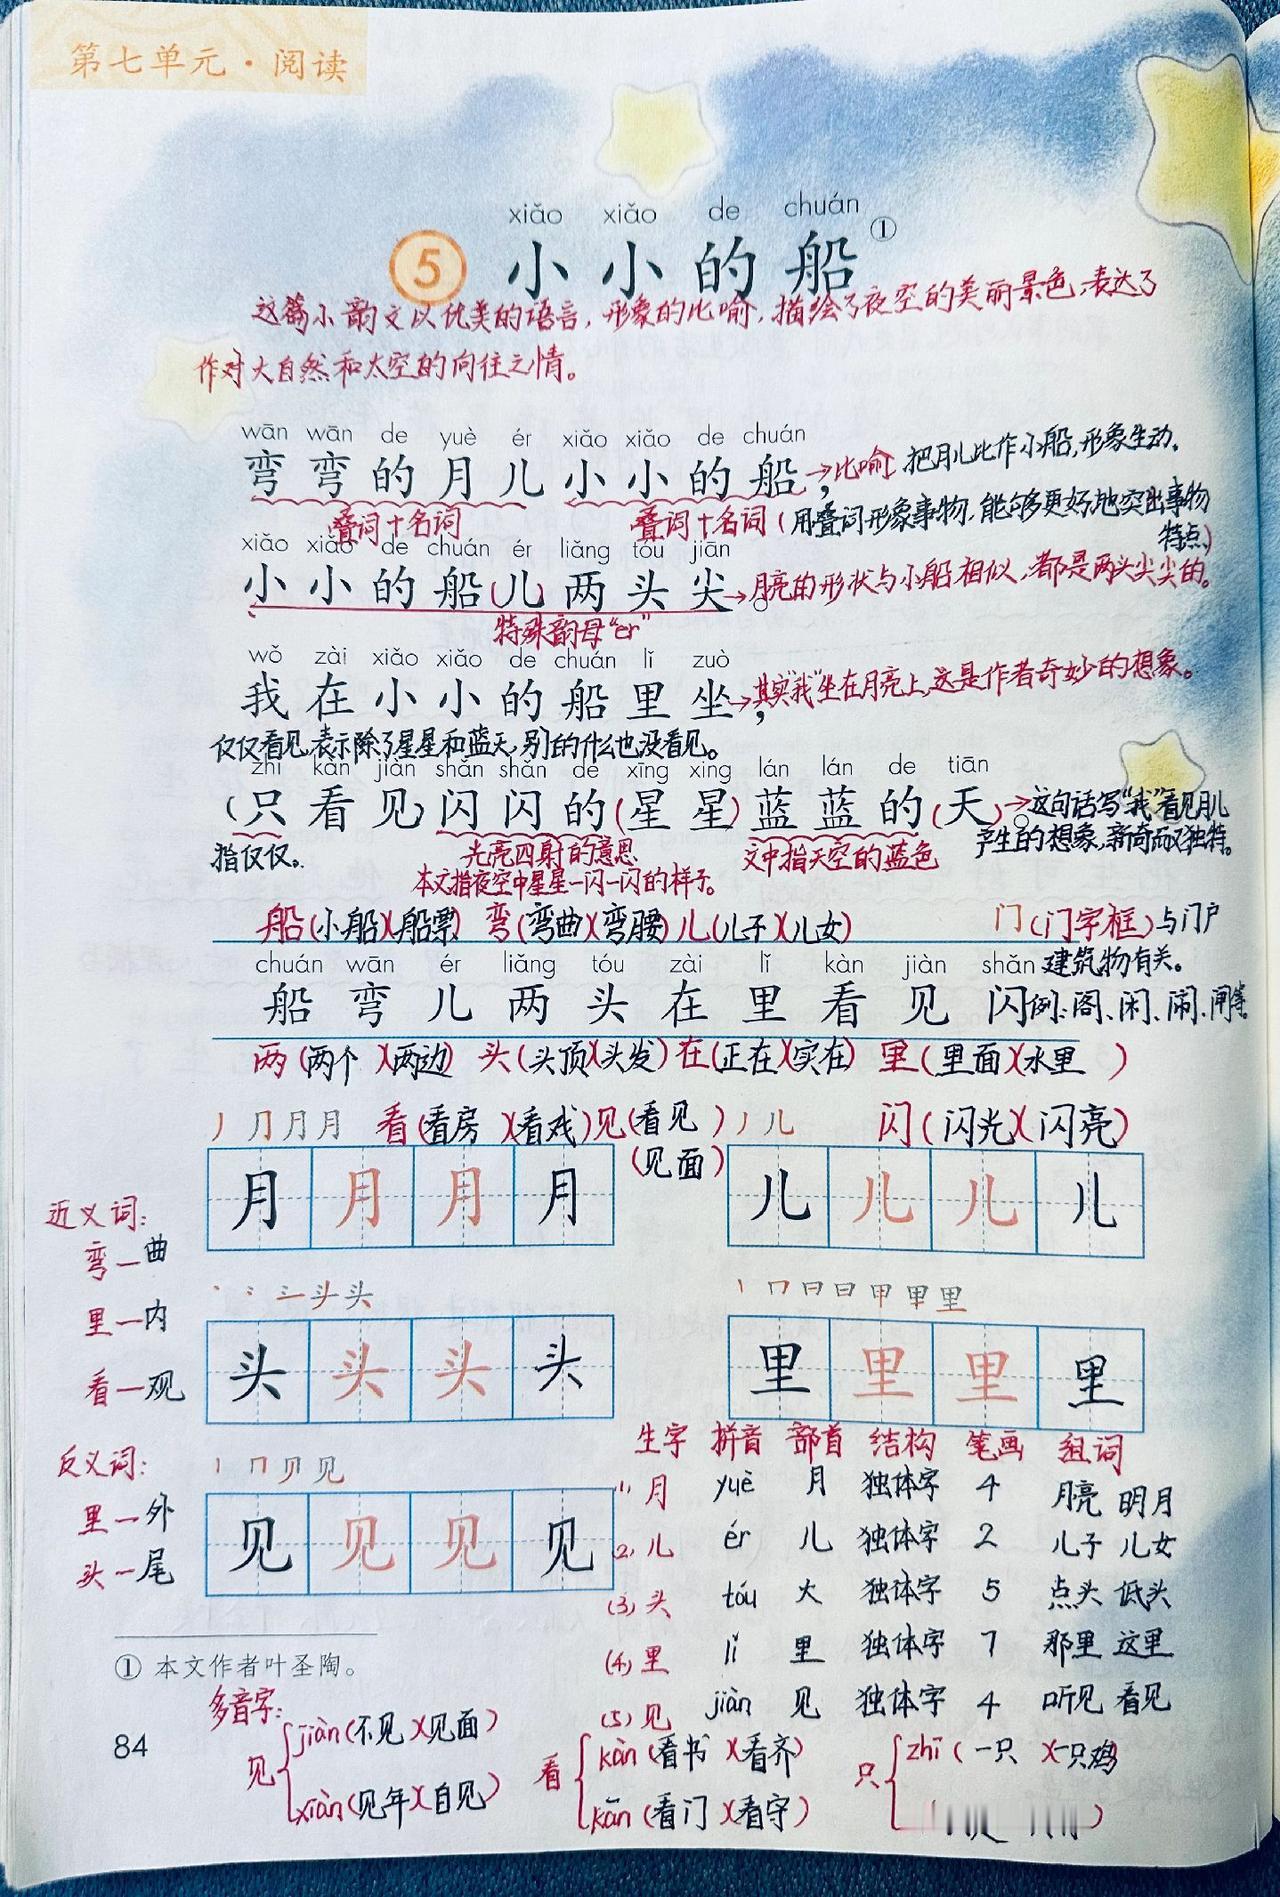 第七单元·阅读
xiǎo xiǎo de chuán
5 小小的船①
这篇小韵文以优美的语言，形象的比喻，描绘了夜空的美丽景色，表达了
作对大自然和太空的向往之情。
wān wān de yuè ér xiǎo xiǎo de chuán
弯弯的月儿小小的船，→比喻，把月儿比作小船，形象生动。
叠词+名词 叠词+名词（用叠词形象事物，能够更好地突出事物
特点）
xiǎo xiǎo de chuán ér liǎng tóu jiān
小小的船(儿)两头尖。→月亮的形状与小船相似，都是两头尖尖的。
特殊韵母“er”
wǒ zài xiǎo xiǎo de chuán lǐ zuò
我在小小的船里坐，→其实“我”坐在月亮上，这是作者奇妙的想象。
仅仅看见，表示除了星星和蓝天，别的什么也没看见。
zhǐ kàn jiàn shǎn shǎn de xīng xing lán lán de tiān
(只看见)闪闪的(星星)蓝蓝的(天)。→这句话写“我”看见月儿
产生的想象，新奇而又独特。
指仅仅。 光亮四射的意思 文中指天空的蓝色
本文指夜空中星星一闪一闪的样子。
船(小船)(船票) 弯(弯曲)(弯腰) 儿(儿子)(儿女) 门(门字框)与门户
建筑物有关。
chuán wān ér liǎng tóu zài lǐ kàn jiàn shǎn
船 弯 儿 两 头 在 里 看 见 闪 例:阁、闲、闹、闸等。
两(两个)(两边) 头(头顶)(头发) 在(正在)(实在) 里(里面)(水里)
看(看房)(看戏) 见(看见) 闪(闪光)(闪亮)
(见面)
月 月 月 月 儿 儿 儿 儿
近义词:
弯—曲
里—内
看—观
头 头 头 头 里 里 里 里
反义词:
里—外
头—尾
见 见 见 见
生字 拼音 部首 结构 笔画 组词
(1) 月 yuè 月 独体字 4 月亮 明月
(2) 儿 ér 儿 独体字 2 儿子 儿女
(3) 头 tóu 大 独体字 5 点头 低头
(4) 里 lǐ 里 独体字 7 那里 这里
(5) 见 jiàn 见 独体字 4 听见 看见
① 本文作者叶圣陶。
84
多音字:
见 jiàn(不见)(见面)
xiàn(见年)(自见)
看 kàn(看书)(看齐)
kān(看门)(看守)
只 zhī(一只)(一只鸡)